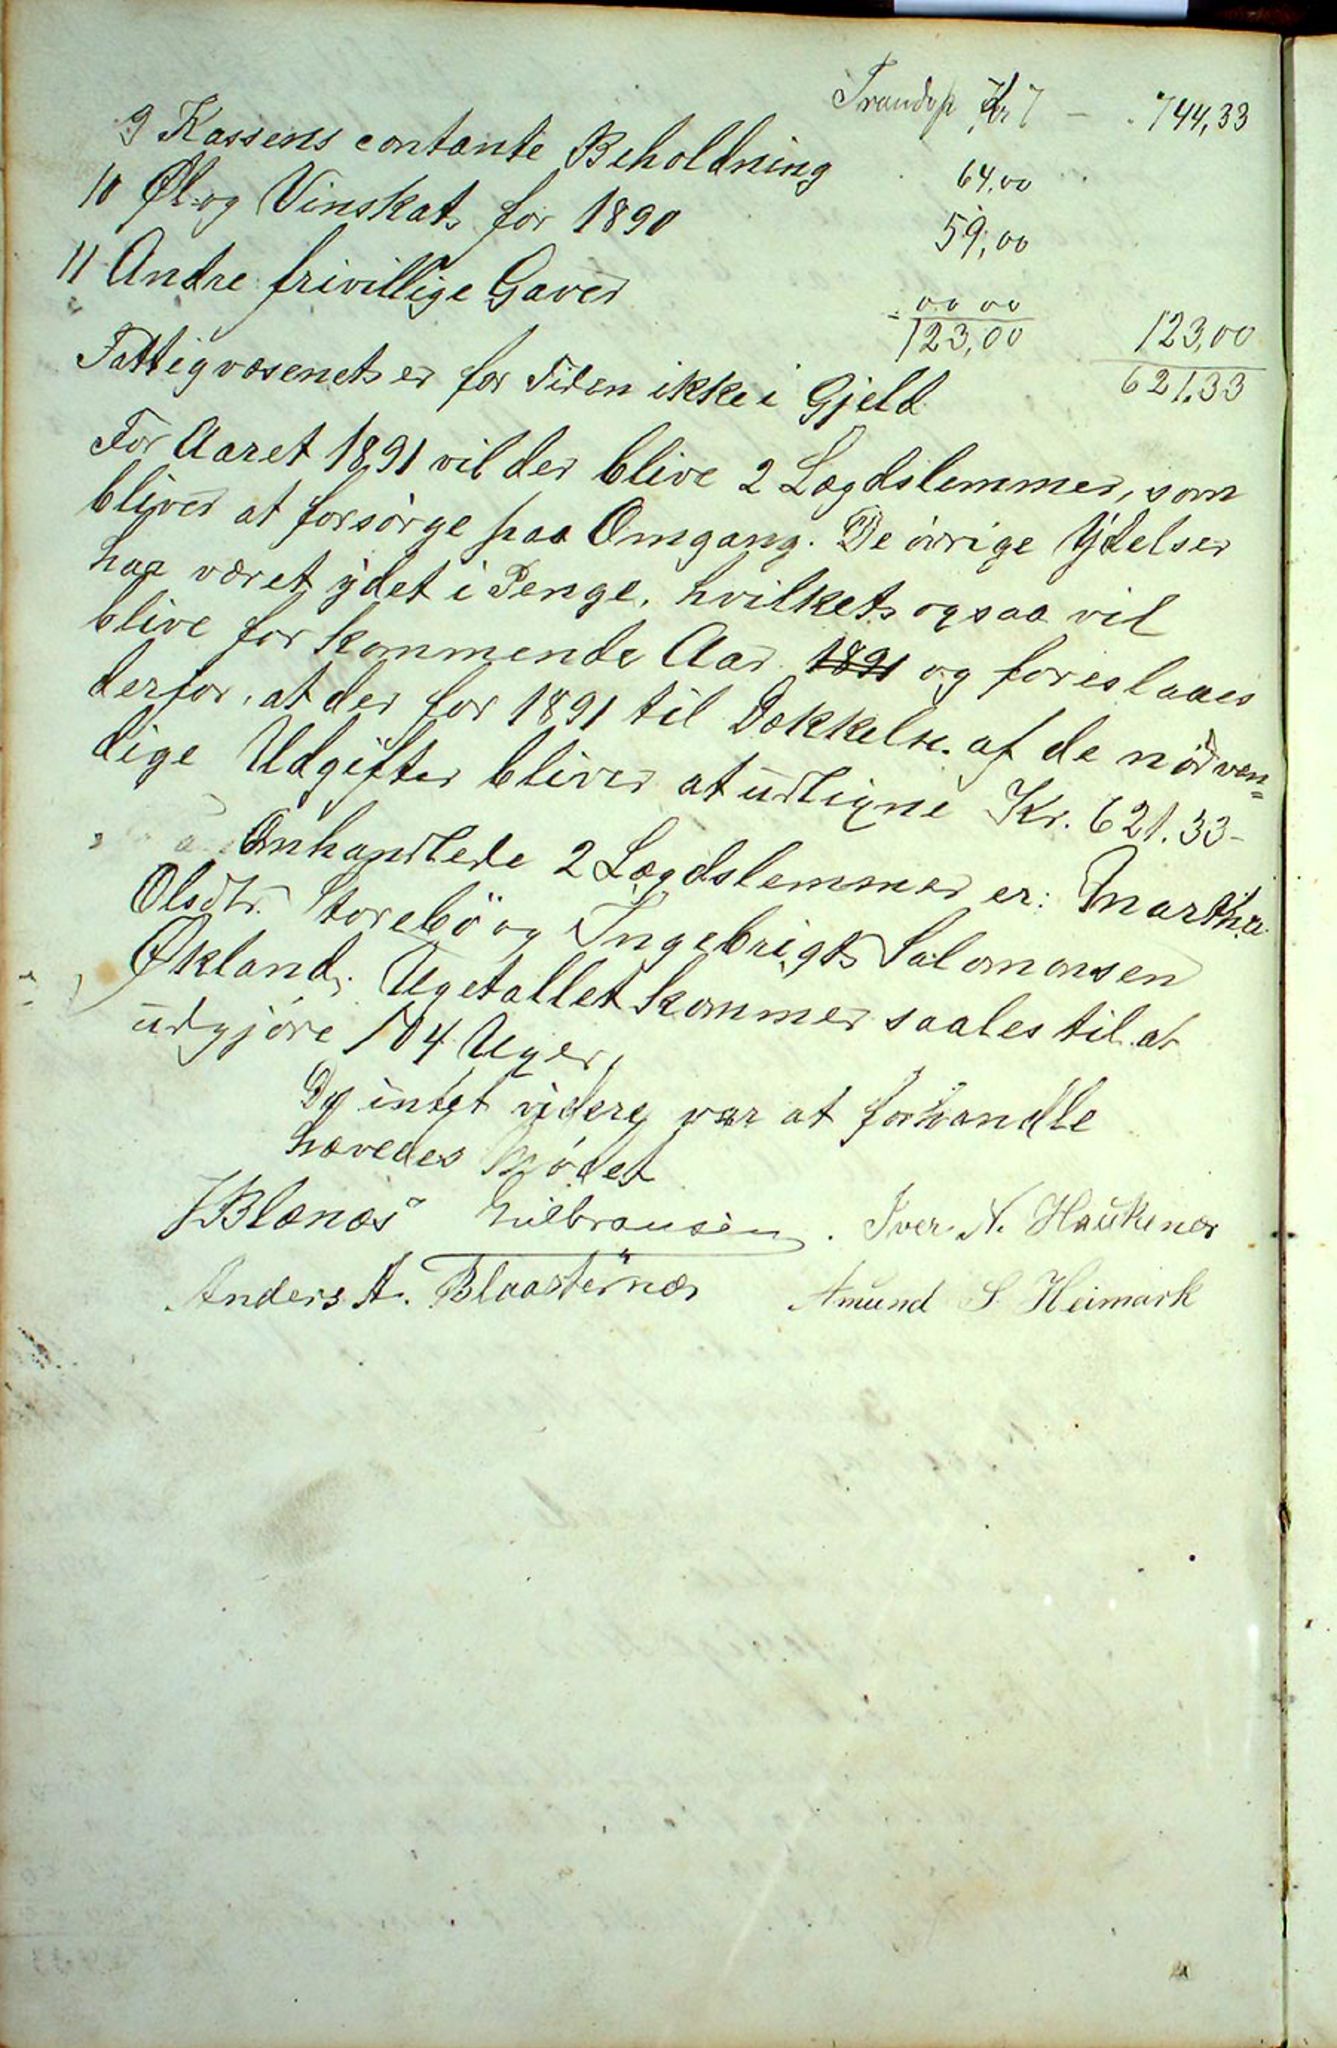 Transp Kr 744,33
9 Kassens contante Beholdning 64,00
10 Øl og Vinskat for 1890 59,00
11 Andre frivillige Gaver 00 00
123,00 123,00
Fattigvæsenet er for Tiden ikke i Gjeld 621.33
For Aaret 1891 vil der blive 2 Lægdslemmer, som
bliver at forsørge paa Omgang. De øvrige Ydelser
har været ydet i Penge, hvilket ogsaa vil
blive for kommende Aar 1891 og foreslaaes
derfor, at der for 1891 til Dækkelse af de nødven=
dige Udgifter bliver at udligne Kr. 621.33-
Omhandlede 2 Lægdslemmer er: Martha
Olsdtr. Storebø og Ingebrigt Salomonsen
Økland. Ugetallet kommer saales til at
udgjøre 104 Uger,
Da intet videre var at forhandle
hævedes Mødet
J Blænæs . Iver N. Haukenæs
Anders A. Blaasternæs Amund S. Heimark